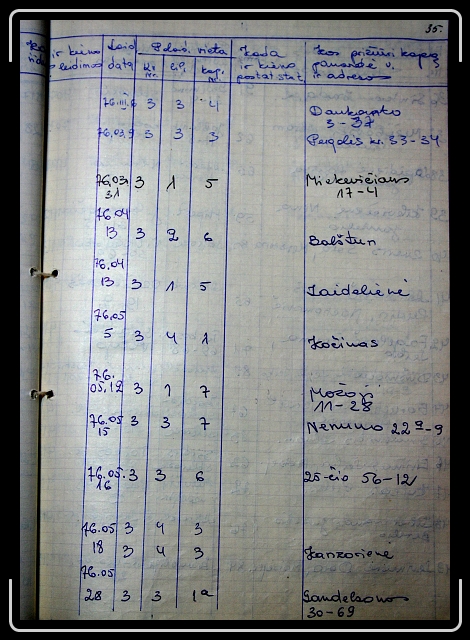 35.
ir kieno Laid. Palaid. vieta Kada Kas prižiūri kapą,
leidimas data Kv. Nr. eil. kap. Nr. ir kieno pavardė v.
postat. stat. ir adresas
76.III.6 3 3 4 Daukanto
3-37
76.03.9 3 3 3 Pergalės kr. 33-34
76.03. 3 1 5 Mickevičiaus
31 17-4
76.04
13 3 2 6
76.04
13 3 1 5 Laidelienė
76.05
5 3 4 1 Kočinas
76.
05.12 3 1 7 Mažoji
11-28
76.05 3 3 7 Nemuno 22ª-9
15
76.05. 3 3 6 25-čio 56-12
16
76.05 3 4 3
18 3 4 3 Kanzorienė
76.05
28 3 3 1ª
30-69